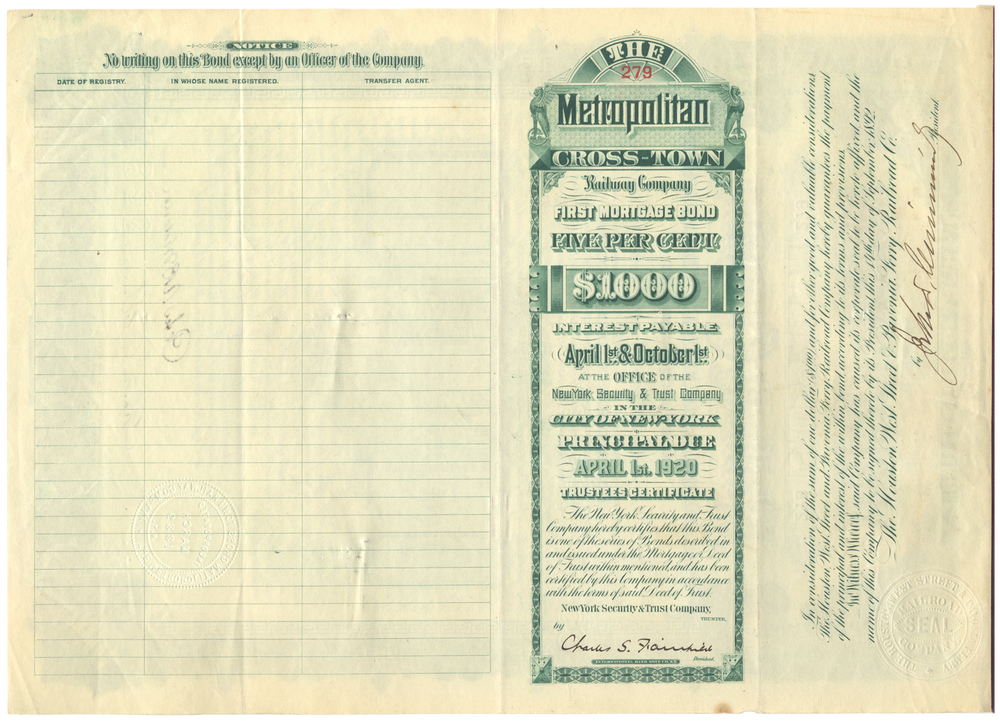 NOTICE
No writing on this Bond except by an Officer of the Company.
DATE OF REGISTRY. IN WHOSE NAME REGISTERED. TRANSFER AGENT.
THE
279
Metropolitan
CROSS-TOWN
Railway Company
FIRST MORTGAGE BOND
FIVE PER CENT.
$1000
INTEREST PAYABLE
April 1st & October 1st
AT THE OFFICE OF THE
New York Security & Trust Company
IN THE
CITY OF NEW-YORK
PRINCIPAL DUE
APRIL 1st. 1920
TRUSTEES CERTIFICATE
The New York Security and Trust
Company hereby certifies that this Bond
is one of the series of Bonds described in
and issued under the Mortgage or Deed
of Trust within mentioned, and has been
certified by this Company in accordance
with the terms of said Deed of Trust.
New York Security & Trust Company,
TRUSTEE,
by
Charles S. Fairchild
President
INTERNATIONAL BANK NOTE CO. N.Y.
In consideration of the sum of one dollar $1.00 and for other good and valuable considerations
the Houston, West Street and Pavonia Ferry Railroad Company hereby guarantees the payment
of the principal and interest of the within bond according to its terms and provisions.
In Witness Whereof, said Company has caused its corporate seal to be hereto affixed and the
name of this Company to be signed thereto by its President this 14th day of September 1892.
The Houston, West Street & Pavonia Ferry Railroad Co.
by
President
WEST STREET
RAILROAD
SEAL
COMPANY